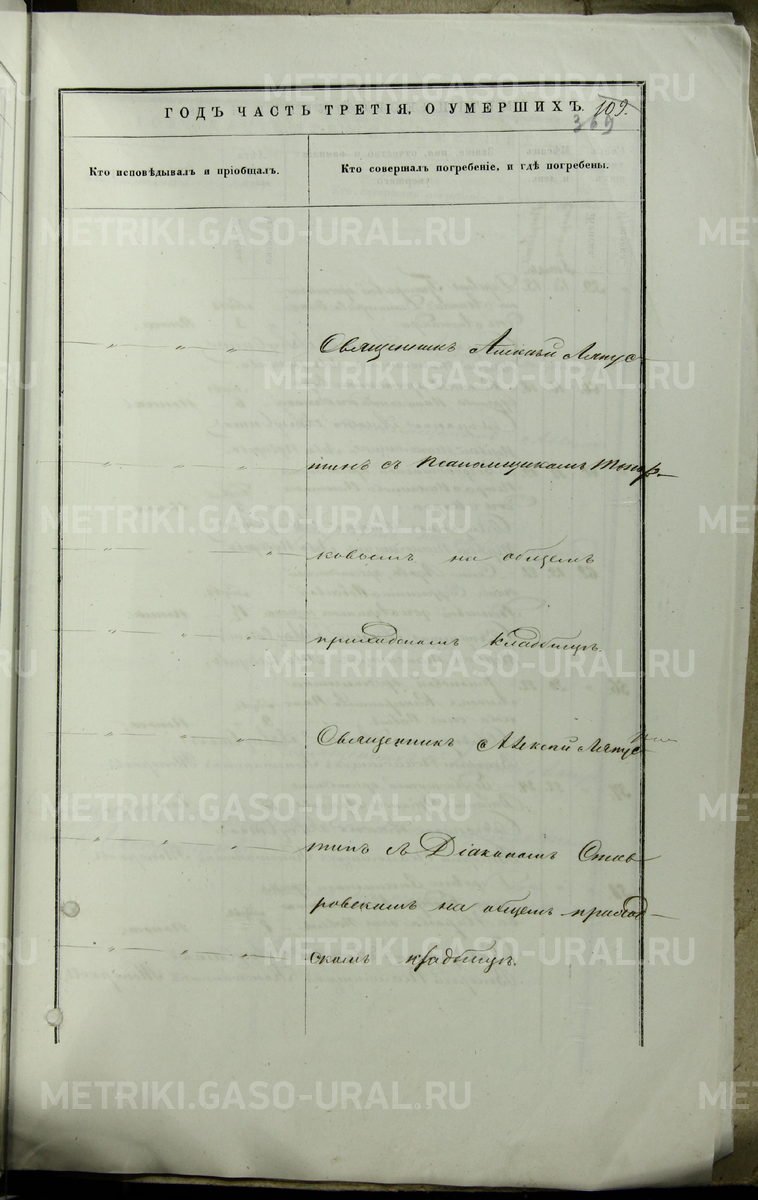 ГОДЪ ЧАСТЬ ТРЕТІЯ, О УМЕРШИХЪ. 109.
369
Кто исповѣдывалъ и пріобщалъ.
Кто совершалъ погребеніе, и гдѣ погребены.
Священникъ Алексѣй Ляпус-
тинъ съ Псаломщикомъ Топор-
ковымъ на общемъ
приходскомъ кладбищѣ.
Священникъ Алексѣй Ляпус
тинъ съ Діакономъ Став
ровскимъ на общемъ приход-
скомъ кладбищѣ.
METRIKI.GASO-URAL.RU